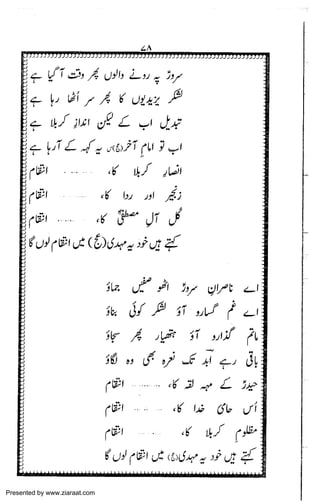 ۷۸
سرورؑ پہ رونے والوں پھر وقت آ گیا ہے
لشکر یزیدیوں کا پھر سر اُٹھا رہا ہے
تبدیل اب کے لیکن اندازِ کربلا ہے
اب تو امامِ آخر(عج) یہ کہہ کے آ رہا ہے
انصارِ کربلا کا، ........ انتقام
زنجیر اور ردا کا، ........ انتقام
کل آلِ مصطفیٰؐ کا، ........ انتقام
کہتے ہیں خود یہ مہدی(عج) میں انتقام لوں گا
اے ناصرانِ سرورؑ اٹھو صفیں جماؤ
اے غم گسارو آؤ لشکر کوئی بناؤ
ماتم گذارو آؤ ہتھیار پھر سجاؤ
باقی رہے ابد تک نعرہ بھی وہ لگاؤ
حیدرؑ کے مہہ لقہ کا، ........ انتقام
اُس حامئ خدا کا، ........ انتقام
مظلومِ کربلا کا، ........ انتقام
کہتے ہیں خود یہ مہدی(عج) میں انتقام لوں گا
Presented by www.ziaraat.com